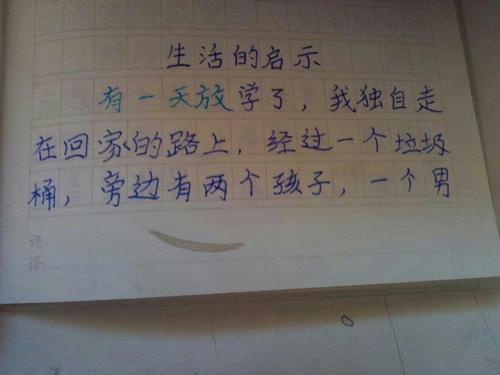 生活的启示
有一天放学了，我独自走
在回家的路上，经过一个垃圾
桶，旁边有两个孩子，一个男
评
语